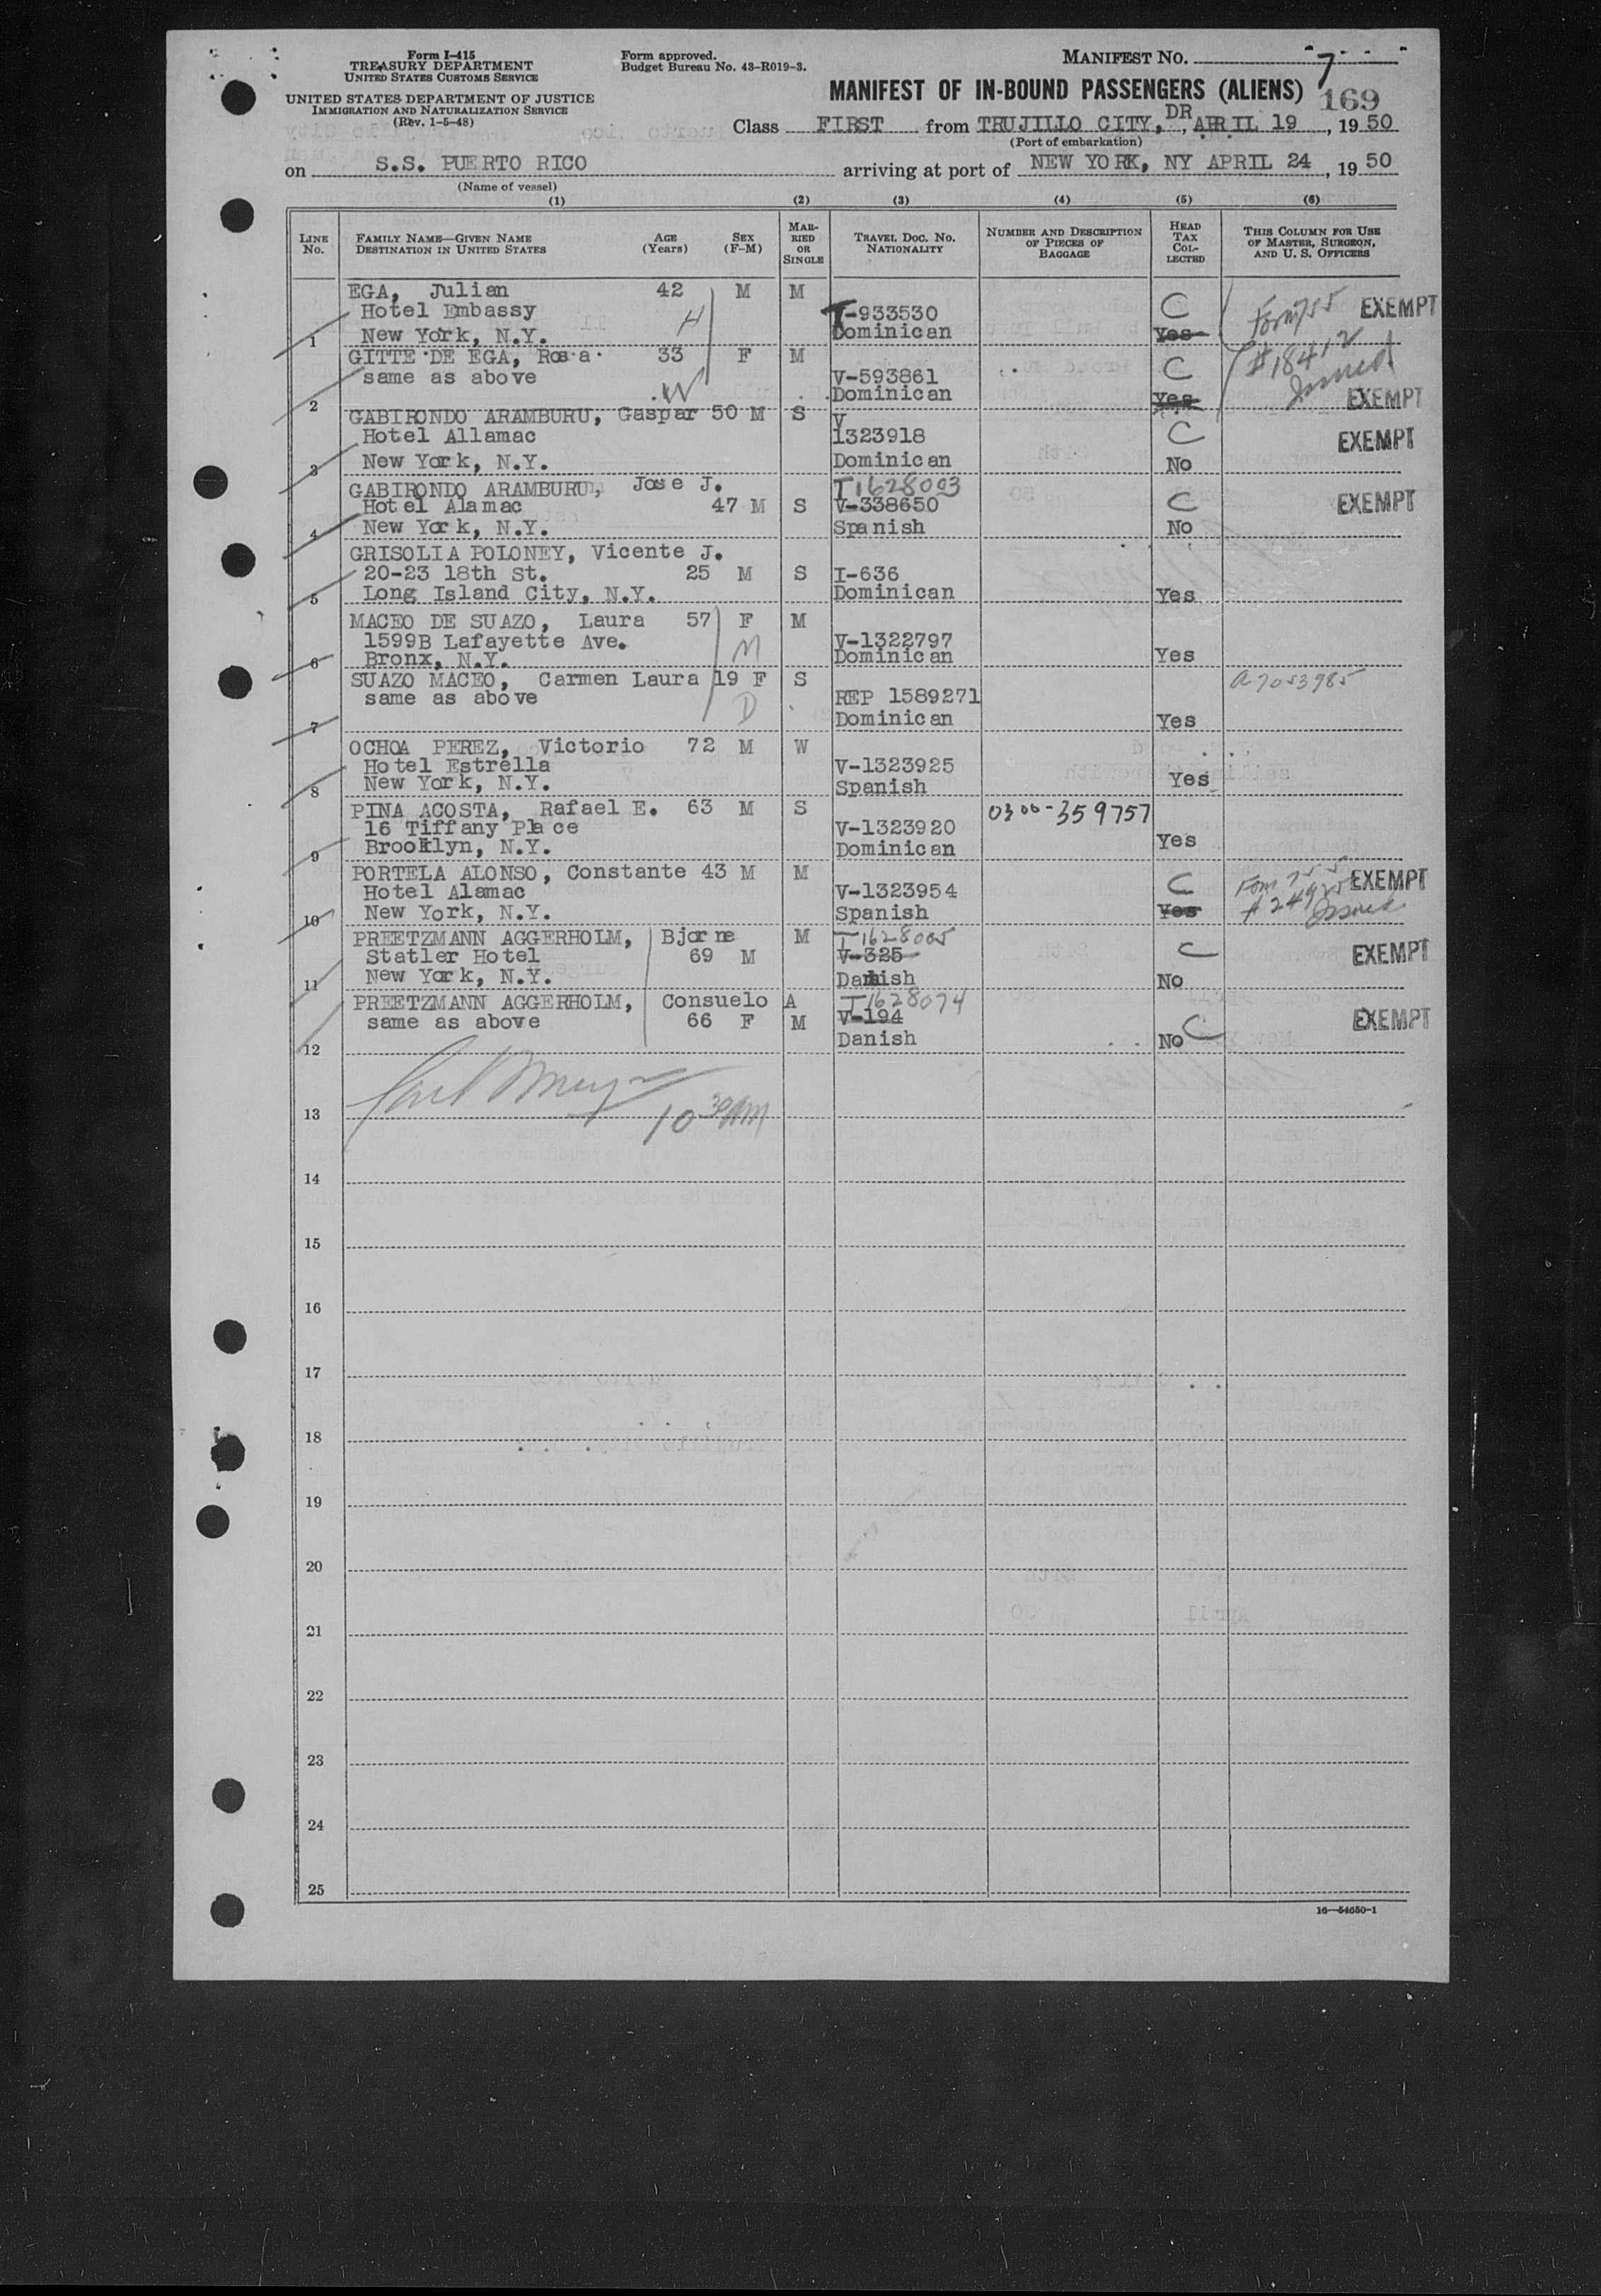 Form I-415
TREASURY DEPARTMENT
UNITED STATES CUSTOMS SERVICE
UNITED STATES DEPARTMENT OF JUSTICE
IMMIGRATION AND NATURALIZATION SERVICE
(Rev. 1-5-48)
Form approved.
Budget Bureau No. 43-R019-3.
MANIFEST NO. 7
MANIFEST OF IN-BOUND PASSENGERS (ALIENS) 169
Class FIRST from TRUJILLO CITY, DR, APRIL 19, 1950
(Port of embarkation)
on S.S. PUERTO RICO arriving at port of NEW YORK, NY APRIL 24, 1950
(Name of vessel)
(1) (2) (3) (4) (5) (6)
LINE NO. FAMILY NAME—GIVEN NAME DESTINATION IN UNITED STATES AGE (Years) SEX (F-M) MARRIED OR SINGLE TRAVEL DOC. NO. NATIONALITY NUMBER AND DESCRIPTION OF PIECES OF BAGGAGE HEAD TAX COLLECTED THIS COLUMN FOR USE OF MASTER, SURGEON, AND U. S. OFFICERS
EGA, Julian 42 M M
Hotel Embassy H -933530 C Form 755 EXEMPT
1 New York, N.Y. Dominican Yes
GITTE DE EGA, Rosa 33 F M #18412
same as above V-593861 C Issued
2 W Dominican Yes EXEMPT
GABIRONDO ARAMBURU, Gaspar 50 M S V
Hotel Allamac 1323918 C EXEMPT
3 New York, N.Y. Dominican No
GABIRONDO ARAMBURU, Jose J. T1628003
Hotel Alamac 47 M S V-338650 C EXEMPT
4 New York, N.Y. Spanish No
GRISOLIA POLONEY, Vicente J.
20-23 18th St. 25 M S I-636
5 Long Island City, N.Y. Dominican Yes
MACEO DE SUAZO, Laura 57 F M
1599B Lafayette Ave. M V-1322797
6 Bronx, N.Y. Dominican Yes
SUAZO MACEO, Carmen Laura 19 F S a7053985
same as above D REP 1589271
7 Dominican Yes
OCHOA PEREZ, Victorio 72 M W
Hotel Estrella V-1323925
8 New York, N.Y. Spanish Yes
PINA ACOSTA, Rafael E. 63 M S 0300-359757
16 Tiffany Place V-1323920
9 Brooklyn, N.Y. Dominican Yes
PORTELA ALONSO, Constante 43 M M C Form 755 EXEMPT
Hotel Alamac V-1323954
10 New York, N.Y. Spanish Yes Issued
PREETZMANN AGGERHOLM, Bjorne M T1628005
Statler Hotel 69 M V-325 C EXEMPT
11 New York, N.Y. Danish No
PREETZMANN AGGERHOLM, Consuelo A T1628074
same as above 66 F M V-194 C EXEMPT
12 Danish No
13 10 30 AM
14
15
16
17
18
19
20
21
22
23
24
25
16—54650-1